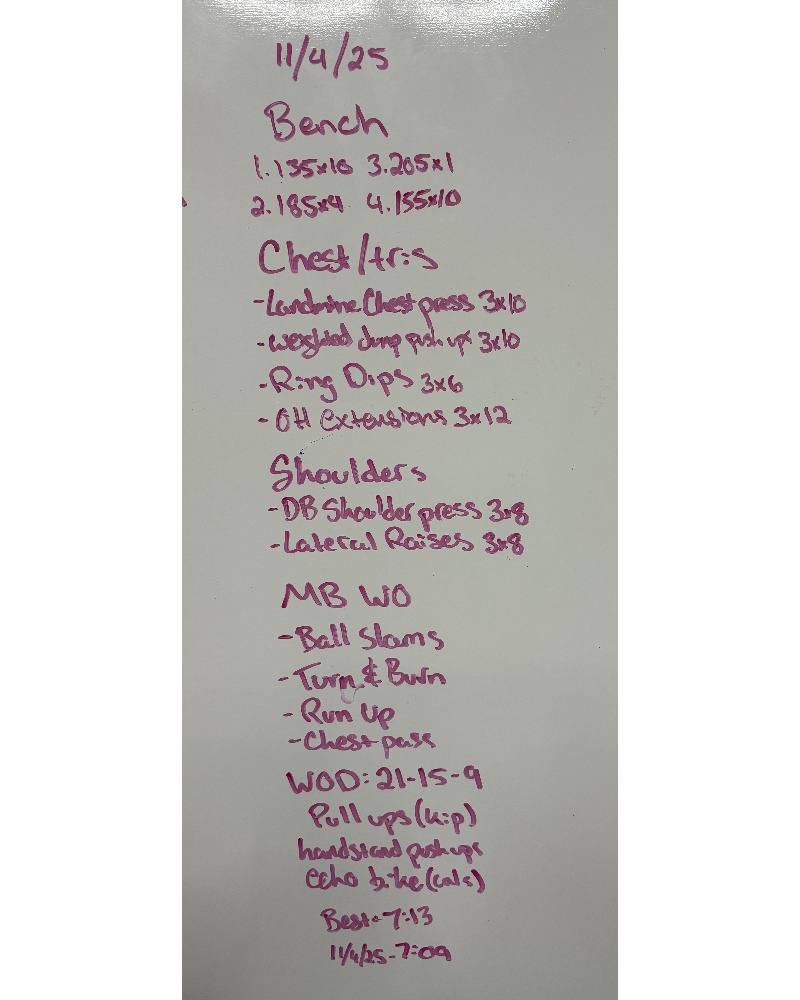 11/4/25
Bench
1.135x10 3.205x1
2.185x4 4.155x10
Chest/tris
-Landmine Chest press 3x10
-weighted dump push ups 3x10
-Ring Dips 3x6
-OH extensions 3x12
Shoulders
-DB Shoulder press 3x8
-Lateral Raises 3x8
MB WO
-Ball Slams
-Turn & Burn
-Run Up
-Chest pass
WOD: 21-15-9
Pull ups (kip)
handstand push ups
echo bike (cals)
Best-7:13
11/4/25-7:09